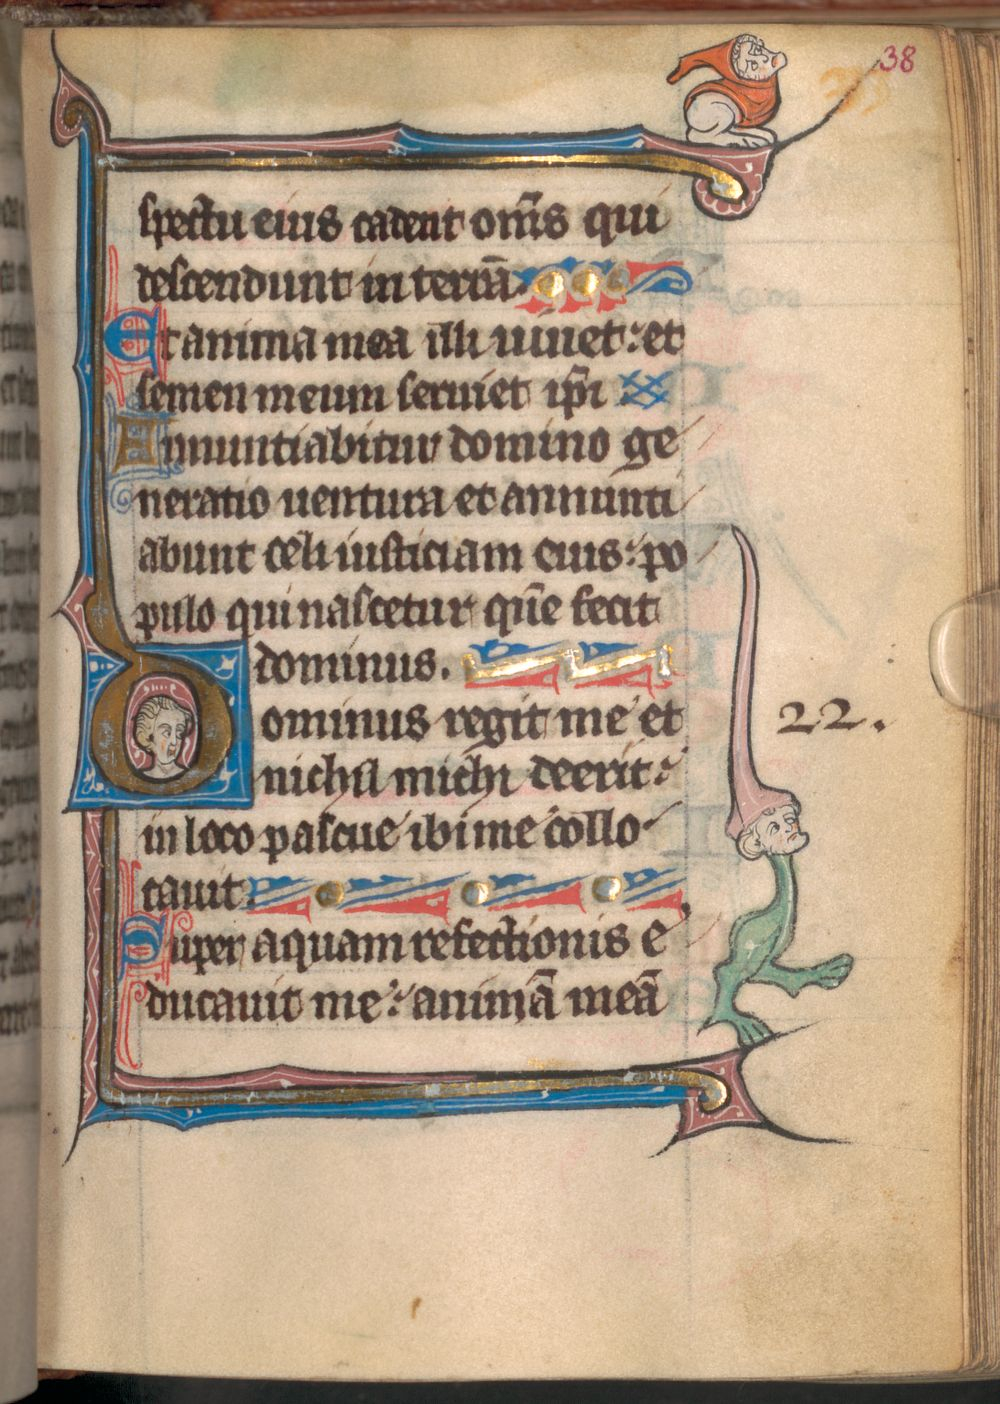 38
spectu eius cadent om̄s qui
descendunt in terrā.
Et anima mea illi uiuet: et
semen meum seruiet ip̄i
Annuntiabitur domino ge
neratio uentura et annunti
abunt celi iusticiam eius: po
pulo qui nascetur quē fecit
dominus.
Dominus regit me et
22.
nichil michi deerit:
in loco pascue ibi me collo
cauit.
Super aquam refectionis e
ducauit me: animā meā